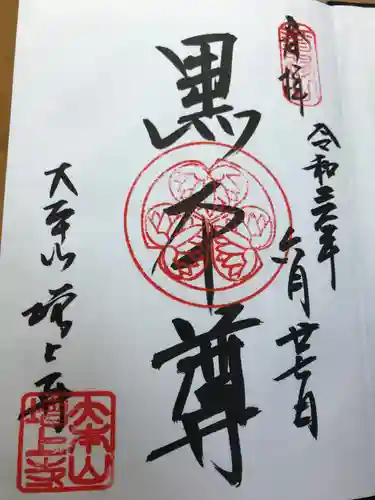 奉拝
令和六年
六月廿七日
黒本尊
大本山
増上寺
大本山
増上寺